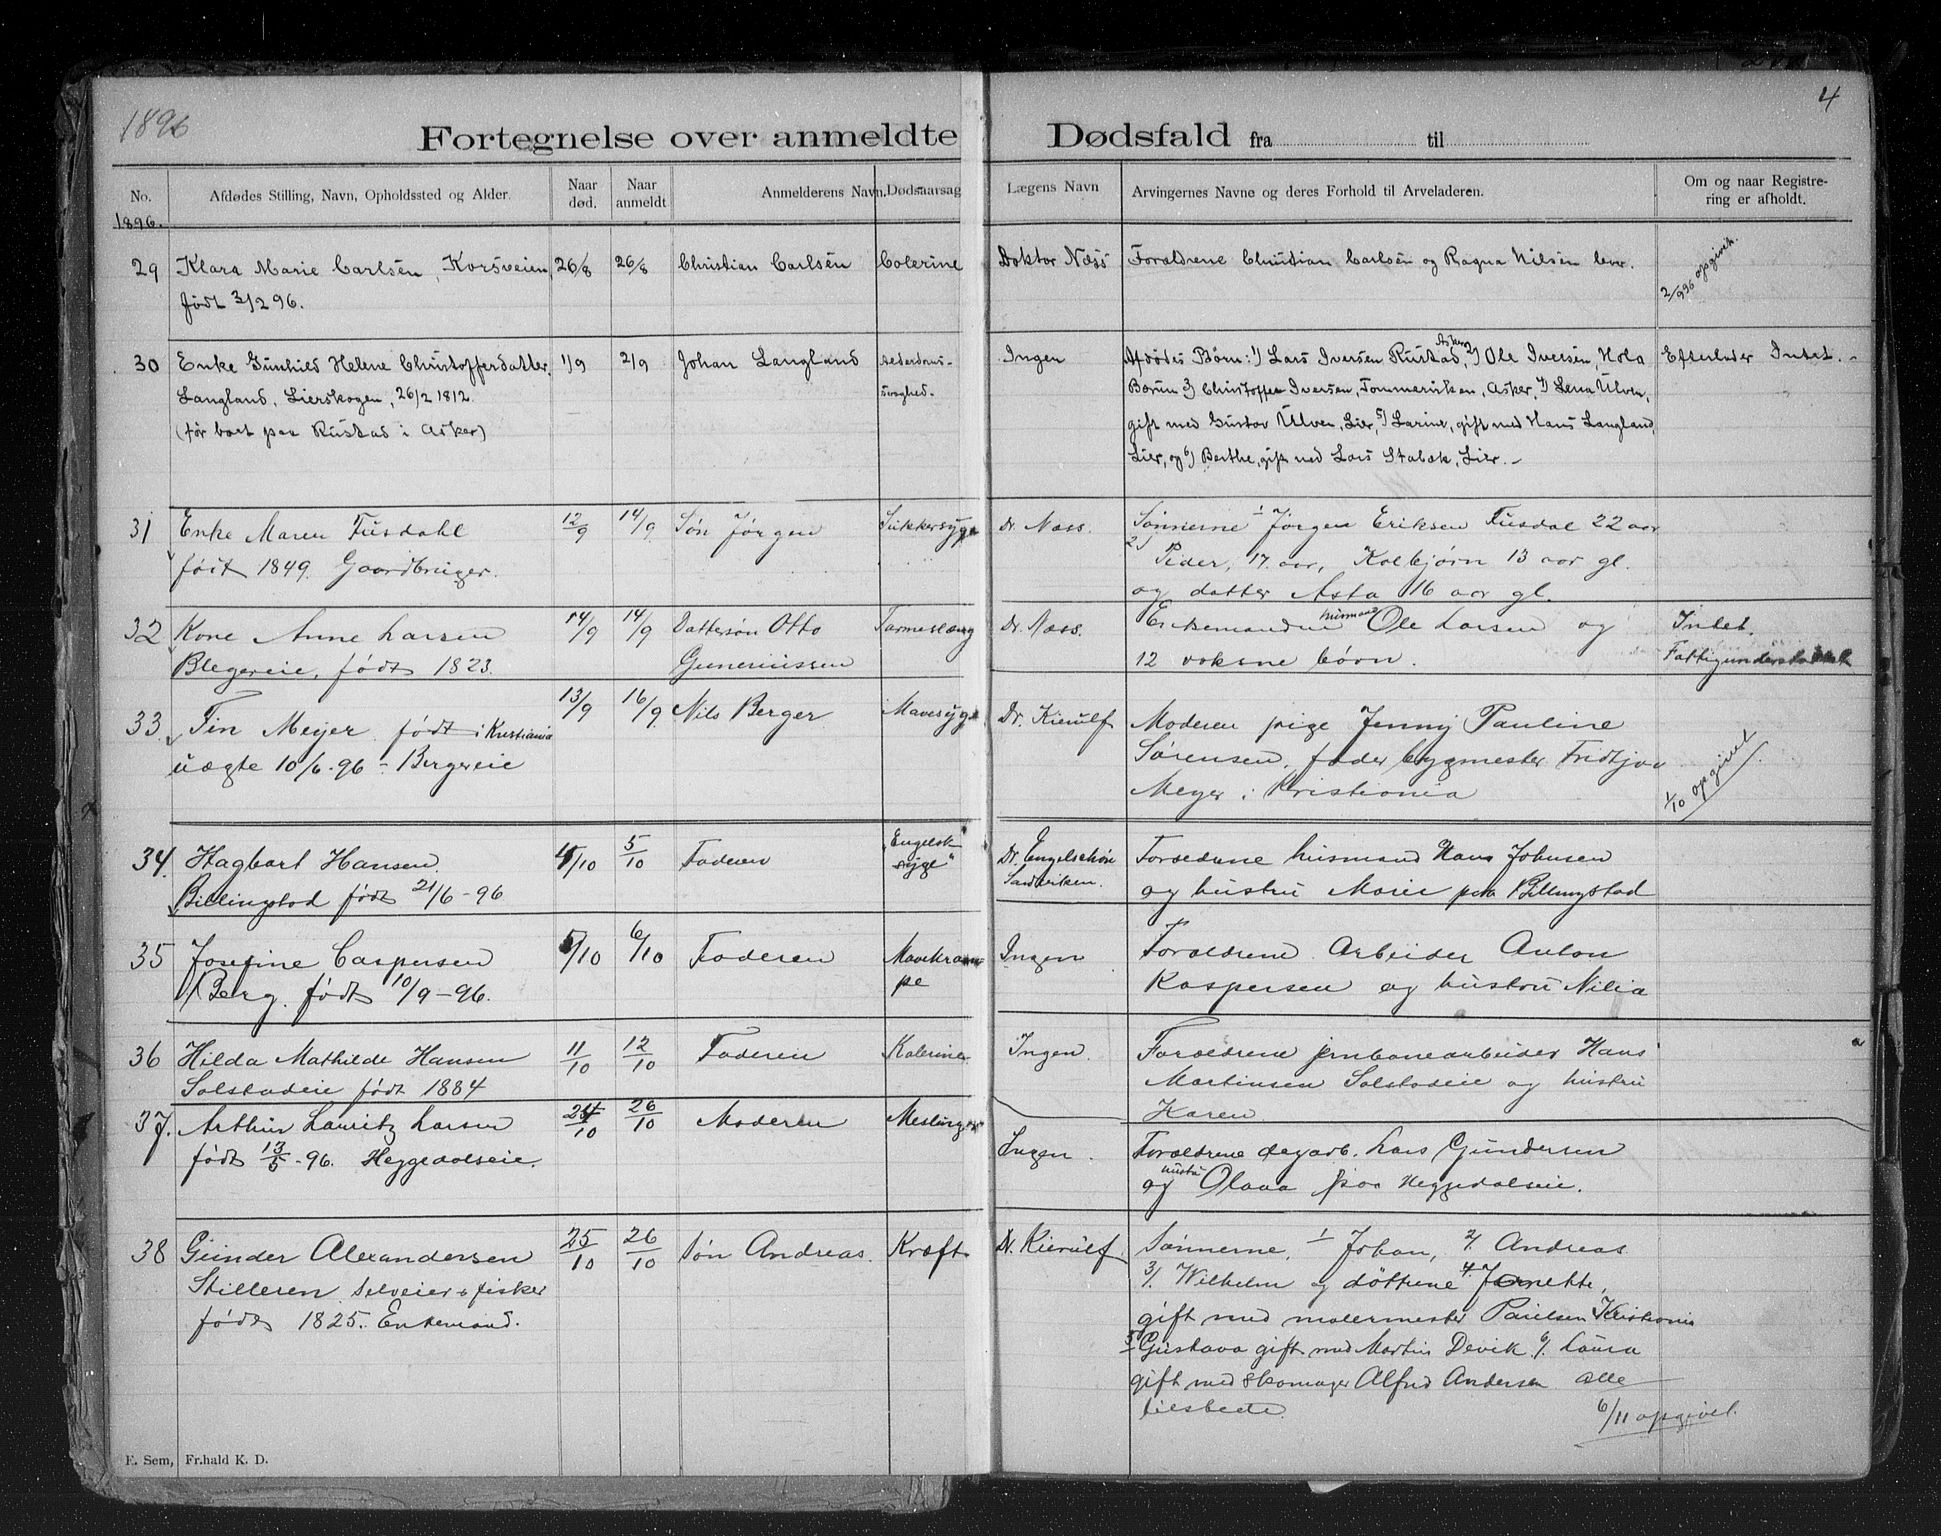 1896
4
Fortegnelse over anmeldte Dødsfald fra til
No. Afdødes Stilling, Navn, Opholdssted og Alder. Naar død. Naar anmeldt Anmelderens Navn. Dødsaarsag Lægens Navn Arvingernes Navne og deres Forhold til Arveladeren. Om og naar Registrering er afholdt.
1896.
29 Klara Marie Carlsen, Korsveien, 26/8 26/8 Christian Carlsén Colerine Doktor Næss Forældrene Christian Carlsén og Ragna Nilsen lever. 2/9 96 opgivet.
født 3/2 96.
30 Enke Gunhild Helene Christoffersdatter, 1/9 2/9 Johan Langland Alderdoms- Ingen Afdødes Børn: 1) Lars Iversen Rustad, Asker, 2) Ole Iversen, Hola Efterlader Intet. -
Langland, Lierskogen, 26/2 1812. svaghed. Bærum 3) Christoffer Iversen, Tommerviken, Asker, 4) Lena Ulven,
(før boet paa Rustad i Asker) gift med Gustav Ulven, Lier, 5) Larine, gift med Hans Langland,
Lier, og 6) Berthe, gift med Lars Stabæk, Lier. -
31 Enke Maren Fusdahl 12/9 14/9 Søn Jørgen Sukkersyge Dr. Næss. Sønnerne 1 Jørgen Eriksen Fusdal 22 aar
født 1849. Gaardbruger. 2) Peder, 17 aar, Kolbjørn 13 aar gl.
og datter Asta 16 aar gl.
32 Kone Anne Larsen 14/9 14/9 Dattersøn Otto Tarmeslæng Dr. Næss. Enkemanden husmand Ole Larsen og Intet.
Blegereie, født 1823. Guneriussen 12 voksne børn. Fattigunderstøttet
33 Fin Meyer født i Kristiania 13/9 16/9 Nils Berger Mavesyge Dr. Kierulf Moderen pige Jenny Pauline
uægte 10/6-96 - Bergereie Sørensen, fader bygmester Fridtjov
Meyer i Kristiania 1/10 opgivet
34. Hagbart Hansen 4/10 5/10 Faderen "Engelsk Dr. Engelschøn Forældrene husmand Hans Johnsen
Billingstad født 21/6-96 syge" Sandviken. og hustru Marie paa Billingstad
35 Josefine Caspersen 5/10 6/10 Faderen Mavekram- Ingen Forældrene Arbeider Anton
Berg. født 10/9-96. pe Kaspersen og hustru Nilia
36 Hilda Mathilde Hansen 11/10 12/10 Faderen Kolerine Ingen. Forældrene jernbanearbeider Hans
Solstadeie født 1884 Martinsen Solstadeie og hustru
Karen
37. Arthur Lauritz Larsen 24/10 26/10 Moderen Meslinger Ingen. Forældrene dagarb. Lars Gundersen
født 13/5-96. Heggedalseie. og hustru Olava paa Heggedalseie.
38 Gunder Alexandersen 25/10 26/10 Søn Andreas. Kræft Dr. Kierulf Sønnerne, 1/ Johan, 2/. Andreas
Stilleren selveier & fisker 3/. Wilhelm og døttrene 4. Jornette,
født 1825. Enkemand. gift med malermester Paulsen Kristiania
5 Gustava gift med Martin Devik 6/. Laura
gift med Skomager Alfred Andersen alle
tilstede. 6/11 opgivet.
E. Sem, Fr.hald K. D.